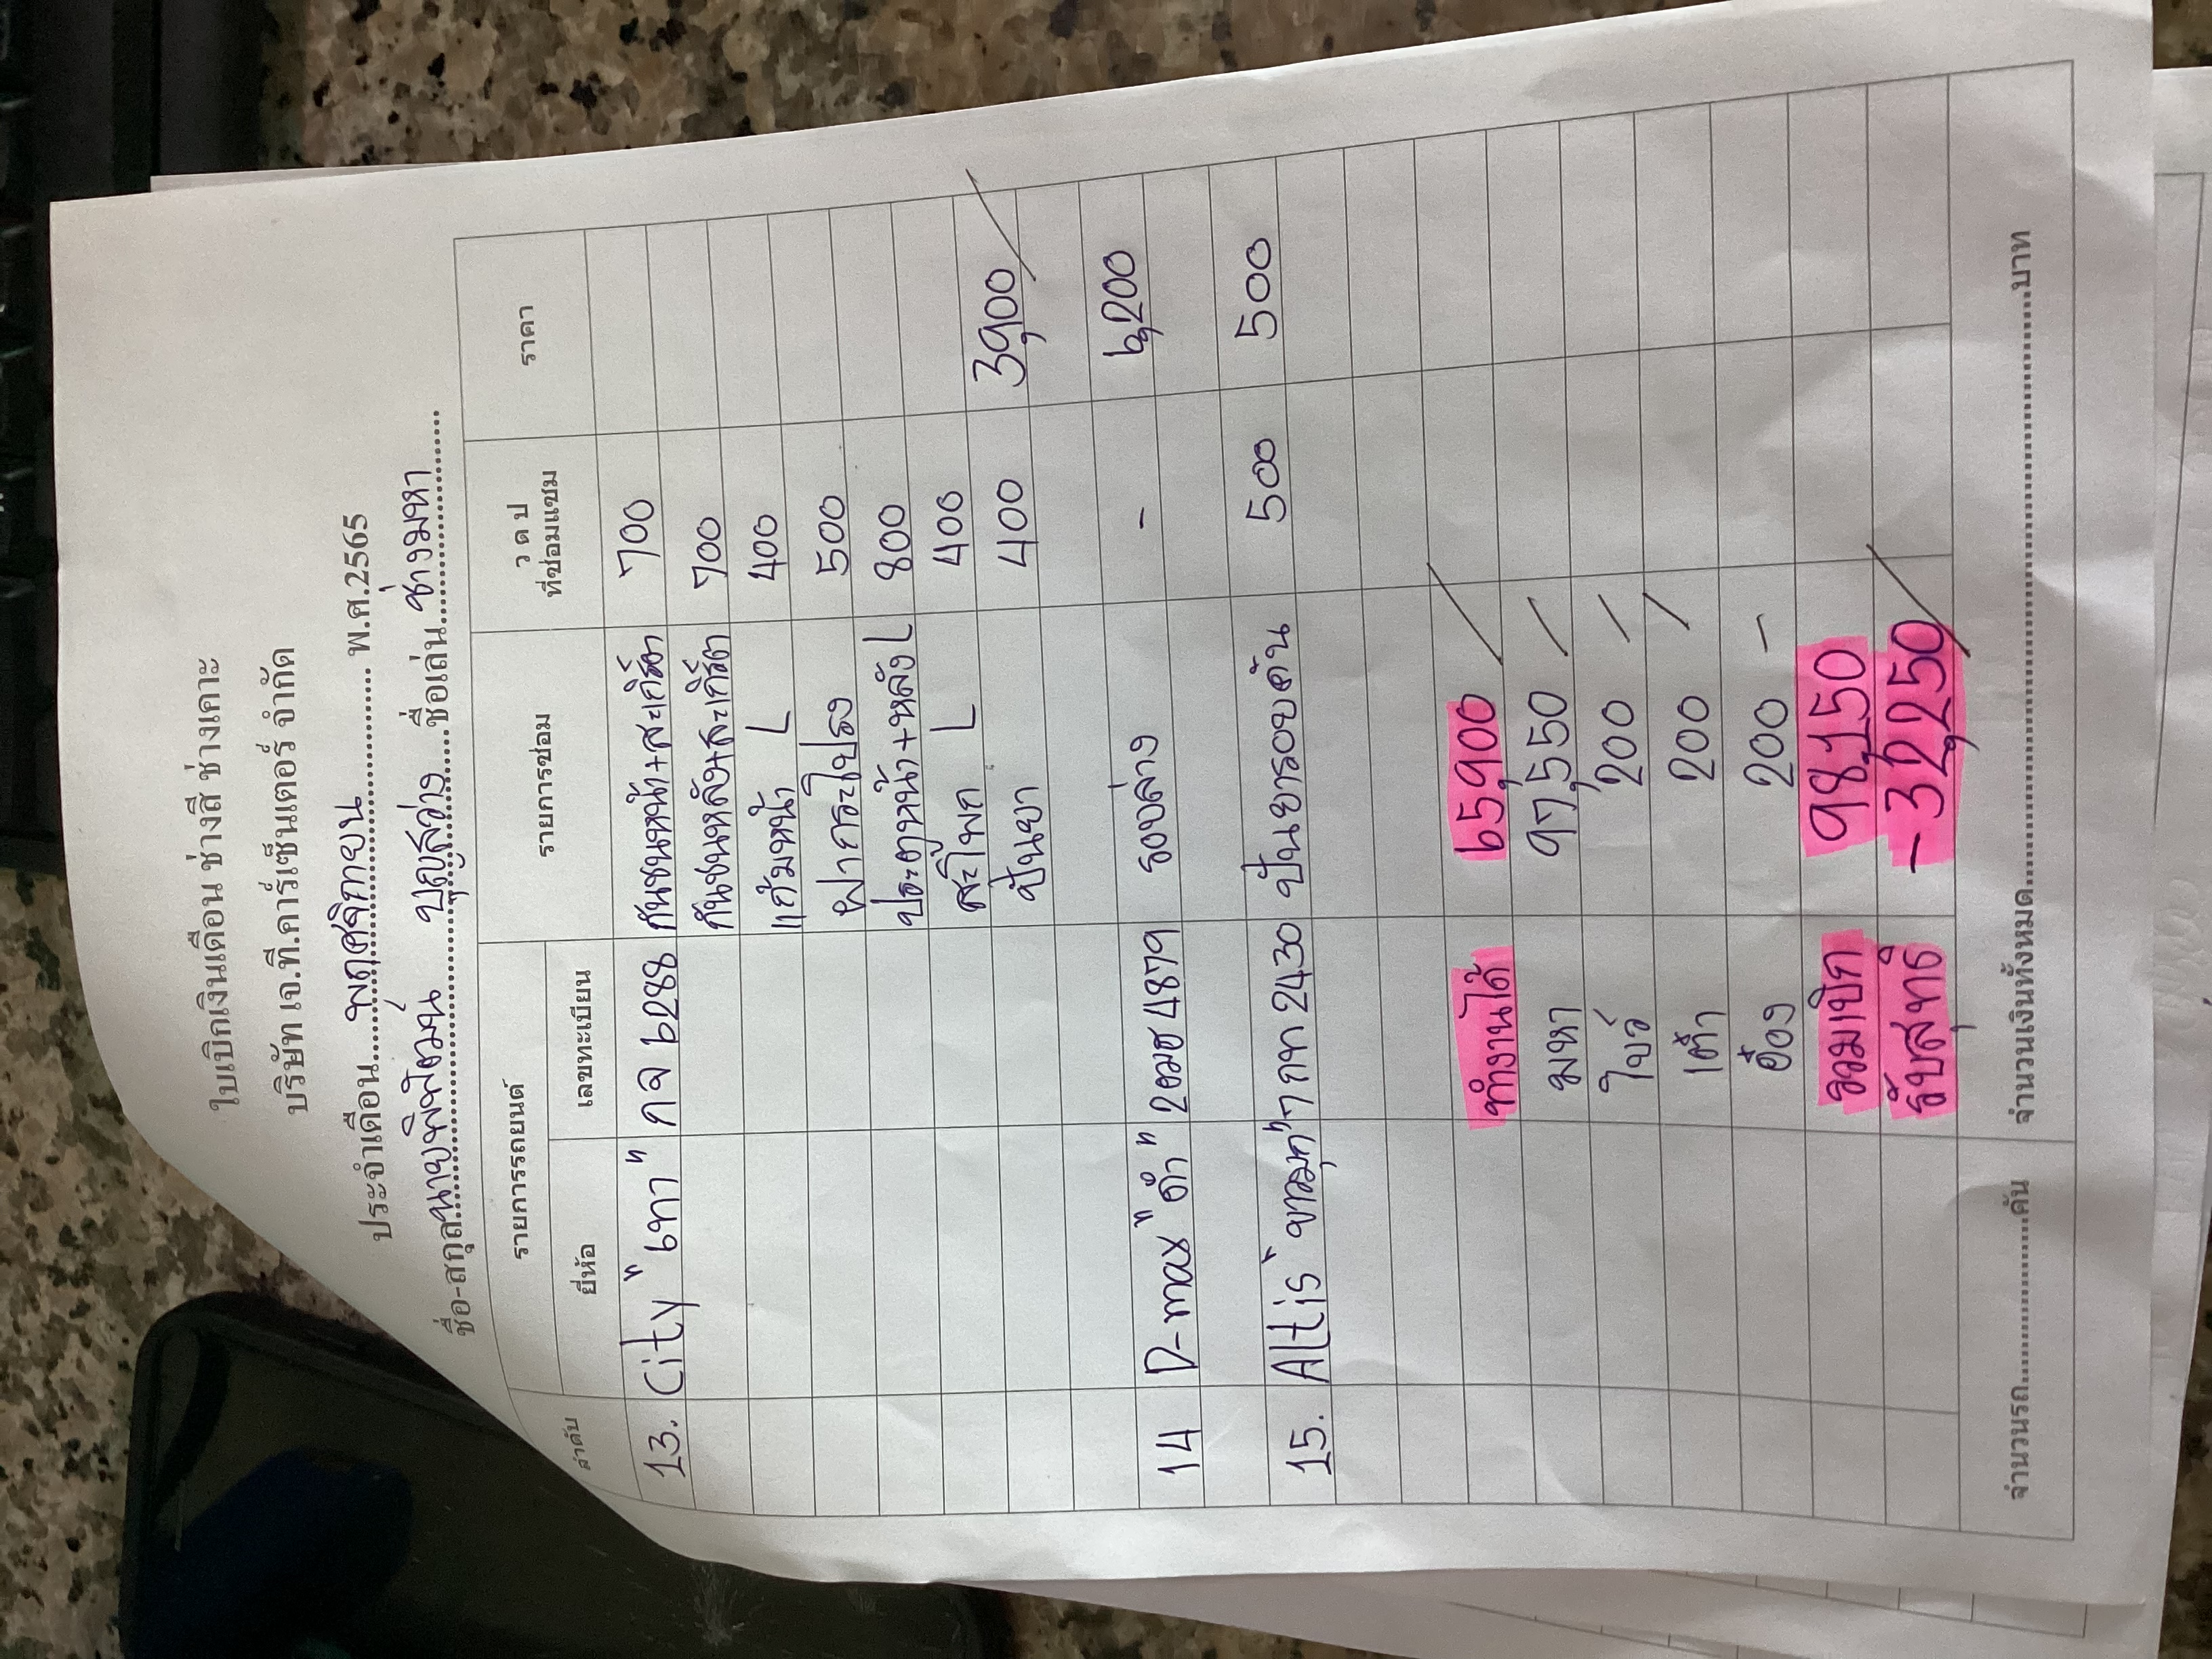 ใบเบิกเงินเดือน ช่างสี ช่างเคาะ
บริษัท เจ.ที.คาร์เซ็นเตอร์ จำกัด
ประจำเดือน.....พฤศจิกายน............... พ.ศ.2565
ชื่อ-สกุล.นายพิพัฒน์ บุญสว่าง...ชื่อเล่น..ช่างมหา......
ลำดับ รายการรถยนต์ รายการซ่อม ว ด ป ที่ซ่อมแซม ราคา
ยี่ห้อ เลขทะเบียน
13. City "เทา" กจ 6288 กันชนหน้า+สะเกิ๊ต 700
กันชนหลัง+สะเกิ๊ต 700
แก้มหน้า L 400
ฝากระโปรง 500
ประตูหน้า+หลัง L 800
สะโพก L 400
ปั่นยา 400 3,900
14 D-max "ดำ" 2ฒช 4879 รอบล่าง - 6,200
15. Altis "ขาวมุก" 7 กท 2430 ปั่นยารอบคัน 500 500
ทำงานได้ 65,900
มหา 97,550
ใบร์ 200
เต๋า 200
อ๊อง 200
รวมเบิก 98,150
รับสุทธิ -32,250
จำนวนรถ...............คัน จำนวนเงินทั้งหมด...............บาท